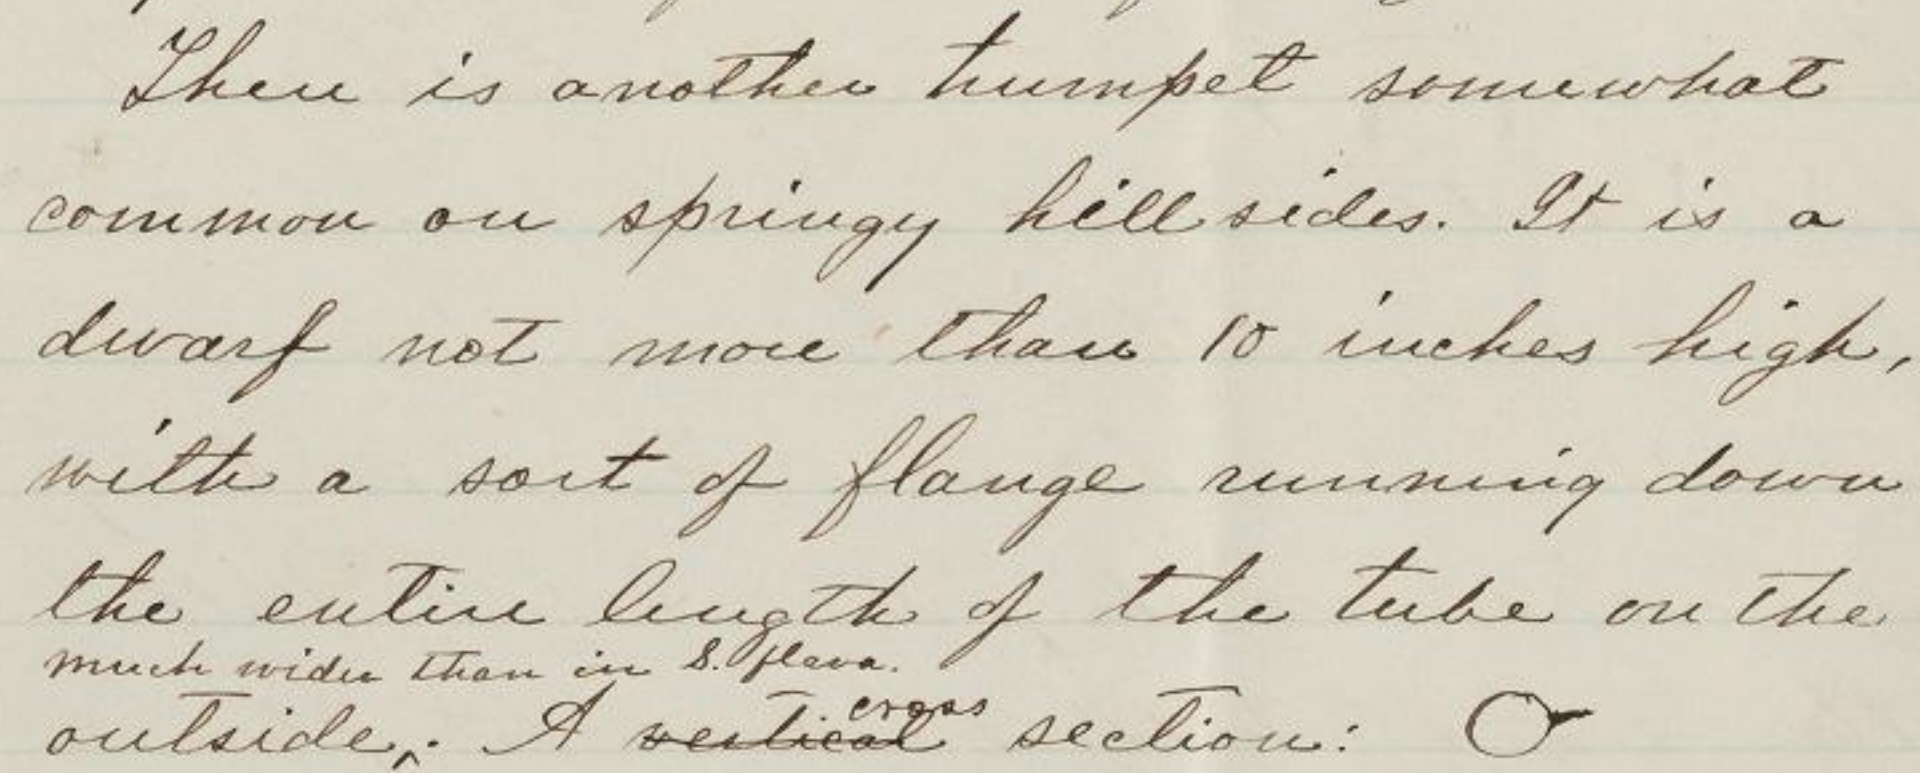 There is another trumpet somewhat
common on springy hillsides. It is a
dwarf not more than 10 inches high,
with a sort of flange running down
the entire length of the tube on the
much wider than in S. flava.
outside,^. A vertical cross section: